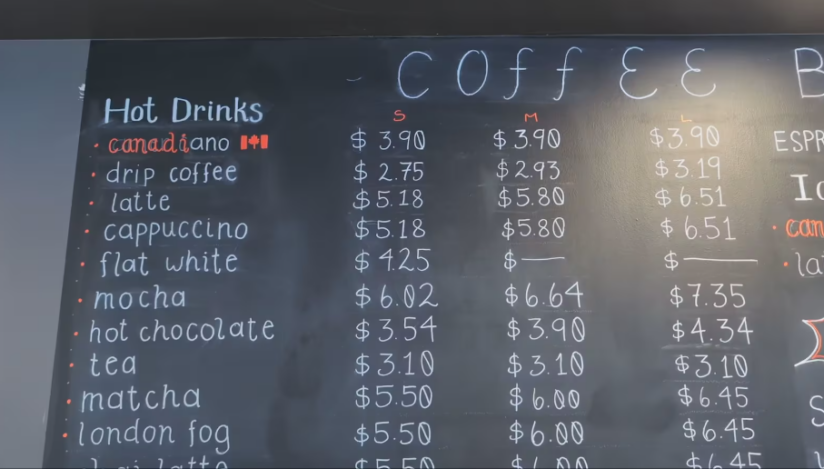 COffEE B
Hot Drinks S M L
• canadiano $ 3.90 $ 3.90 $3.90 ESPR
• drip coffee $ 2.75 $2.93 $3.19
• latte $5.18 $5.80 $6.51
• cappuccino $5.18 $5.80 $6.51 • can
• flat white $ 4.25 $— $— • la
• mocha $6.02 $6.64 $7.35
• hot chocolate $3.54 $3.90 $4.34
• tea $3.10 $3.10 $3.10
• matcha $5.50 $6.00 $6.45
• london fog $5.50 $6.00 $6.45
latte $5.50 $6.00 $6.45